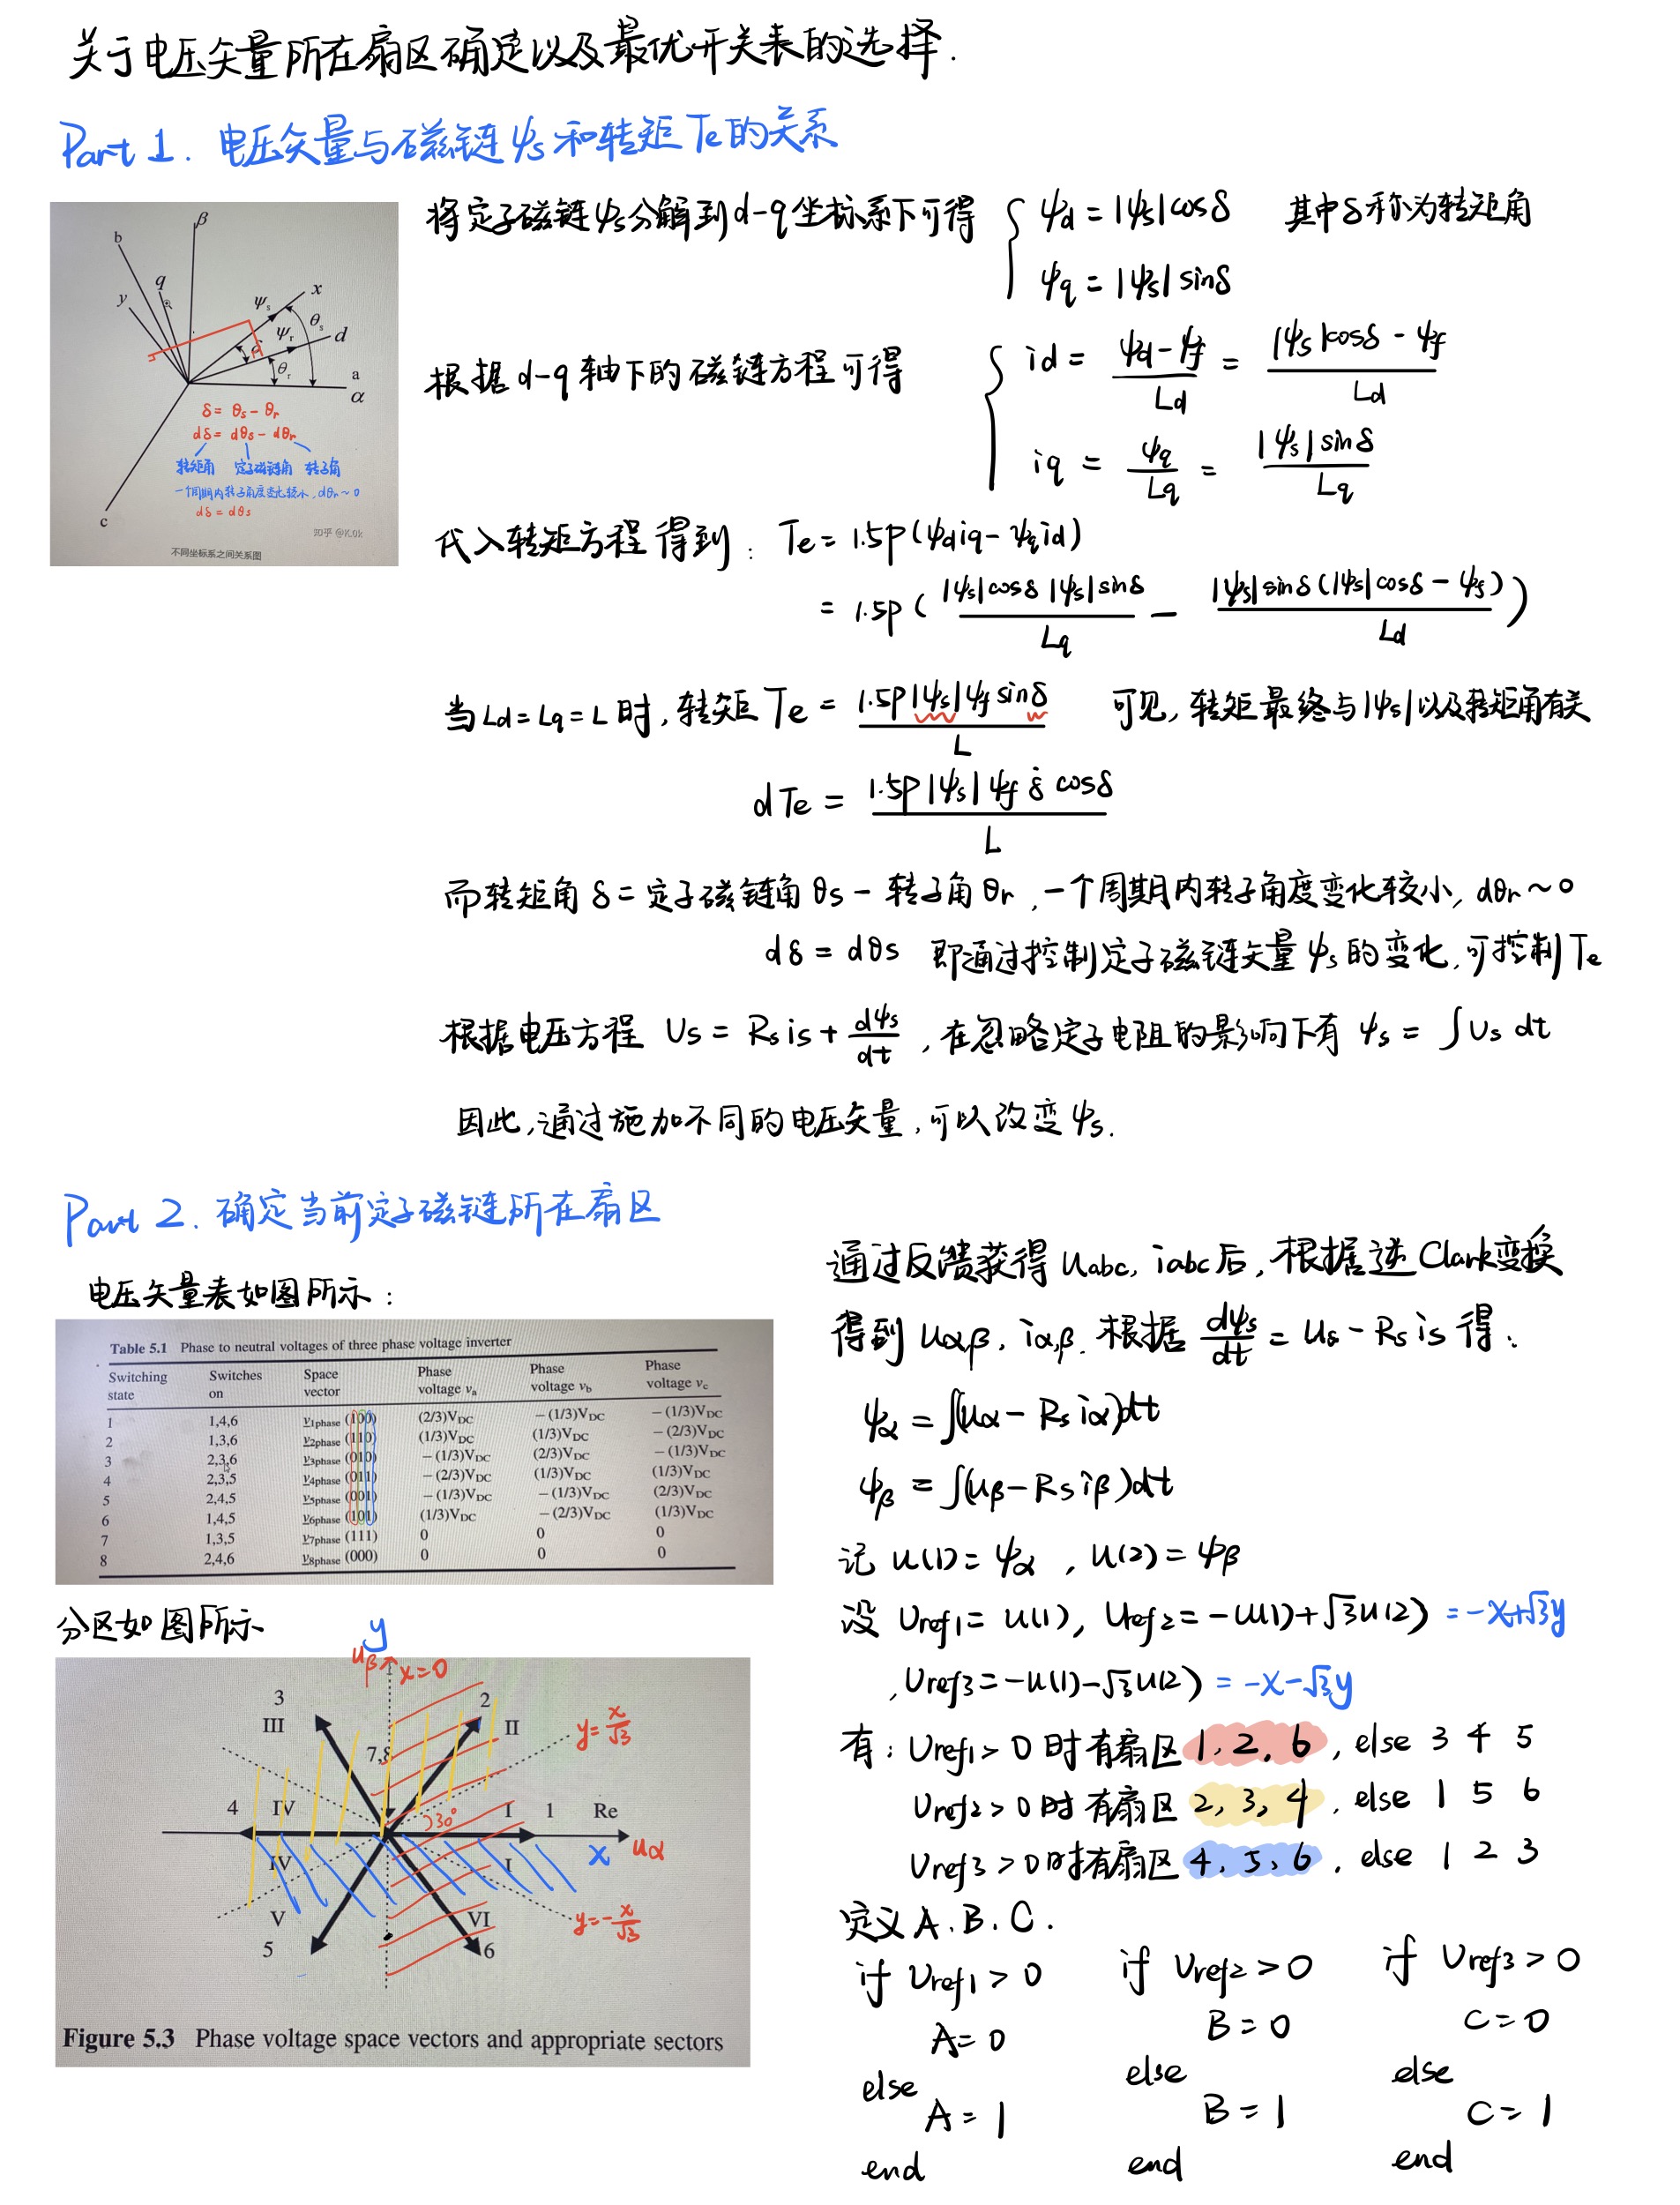 关于电压矢量所在扇区确定以及最优开关表的选择.
Part 1. 电压矢量与磁链ψs和转矩Te的关系
将定子磁链ψs分解到d-q坐标系下可得 { ψd = |ψs|cosδ 其中δ称为转矩角
ψq = |ψs|sinδ
β
b
q
y
ψs
x
θs
ψr
d
δ
θr
a
α
c
δ = θs - θr
dδ = dθs - dθr
转矩角 定子磁链角 转子角
一个周期内转子角度变化较小, dθr ~ 0
dδ = dθs
不同坐标系之间关系图
根据d-q轴下的磁链方程可得 { id = (ψd - ψf)/Ld = (|ψs|cosδ - ψf)/Ld
iq = ψq/Lq = |ψs|sinδ/Lq
代入转矩方程得到: Te = 1.5p(ψdiq - ψqid)
= 1.5p(|ψs|cosδ|ψs|sinδ/Lq - |ψs|sinδ(|ψs|cosδ - ψf)/Ld)
当Ld = Lq = L时, 转矩Te = 1.5p|ψs|ψf sinδ/L 可见, 转矩最终与|ψs|以及转矩角有关
dTe = 1.5p|ψs|ψf δ̇ cosδ/L
而转矩角δ = 定子磁链角θs - 转子角θr, 一个周期内转子角度变化较小, dθr ~ 0
dδ = dθs 即通过控制定子磁链矢量ψs的变化, 可控制Te
根据电压方程 Us = Rs is + dψs/dt, 在忽略定子电阻的影响下有 ψs = ∫Us dt
因此, 通过施加不同的电压矢量, 可以改变ψs.
Part 2. 确定当前定子磁链所在扇区
电压矢量表如图所示:
Table 5.1 Phase to neutral voltages of three phase voltage inverter
Switching state Switches on Space vector Phase voltage va Phase voltage vb Phase voltage vc
1 1,4,6 v1phase (100) (2/3)VDC −(1/3)VDC −(1/3)VDC
2 1,3,6 v2phase (110) (1/3)VDC (1/3)VDC −(2/3)VDC
3 2,3,6 v3phase (010) −(1/3)VDC (2/3)VDC −(1/3)VDC
4 2,3,5 v4phase (011) −(2/3)VDC (1/3)VDC (1/3)VDC
5 2,4,5 v5phase (001) −(1/3)VDC −(1/3)VDC (2/3)VDC
6 1,4,5 v6phase (101) (1/3)VDC −(2/3)VDC (1/3)VDC
7 1,3,5 v7phase (111) 0 0 0
8 2,4,6 v8phase (000) 0 0 0
分区如图所示
y
uβ x=0
3
III
2
II
y = x/√3
7,8
4 IV
30°
I 1 Re
x uα
IV
I
V
5
VI
6
y = -x/√3
Figure 5.3 Phase voltage space vectors and appropriate sectors
通过反馈获得Uabc, iabc后, 根据逆Clark变换
得到 uα,β, iα,β. 根据 dψs/dt = Us - Rs is 得:
ψα = ∫(uα - Rs iα)dt
ψβ = ∫(uβ - Rs iβ)dt
记 u(1) = ψα, u(2) = ψβ
设 Uref1 = u(1), Uref2 = -u(1)+√3u(2) = -x+√3y
, Uref3 = -u(1)-√3u(2) = -x-√3y
有: Uref1 > 0 时有扇区 1, 2, 6, else 3 4 5
Uref2 > 0 时有扇区 2, 3, 4, else 1 5 6
Uref3 > 0 时有扇区 4, 5, 6, else 1 2 3
定义 A. B. C.
if Uref1 > 0 if Uref2 > 0 if Uref3 > 0
A = 0 B = 0 C = 0
else else else
A = 1 B = 1 C = 1
end end end